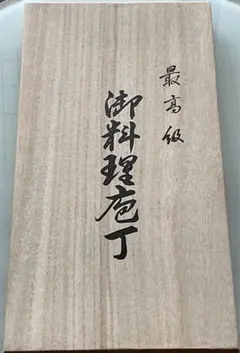 最高級
御料理庖丁